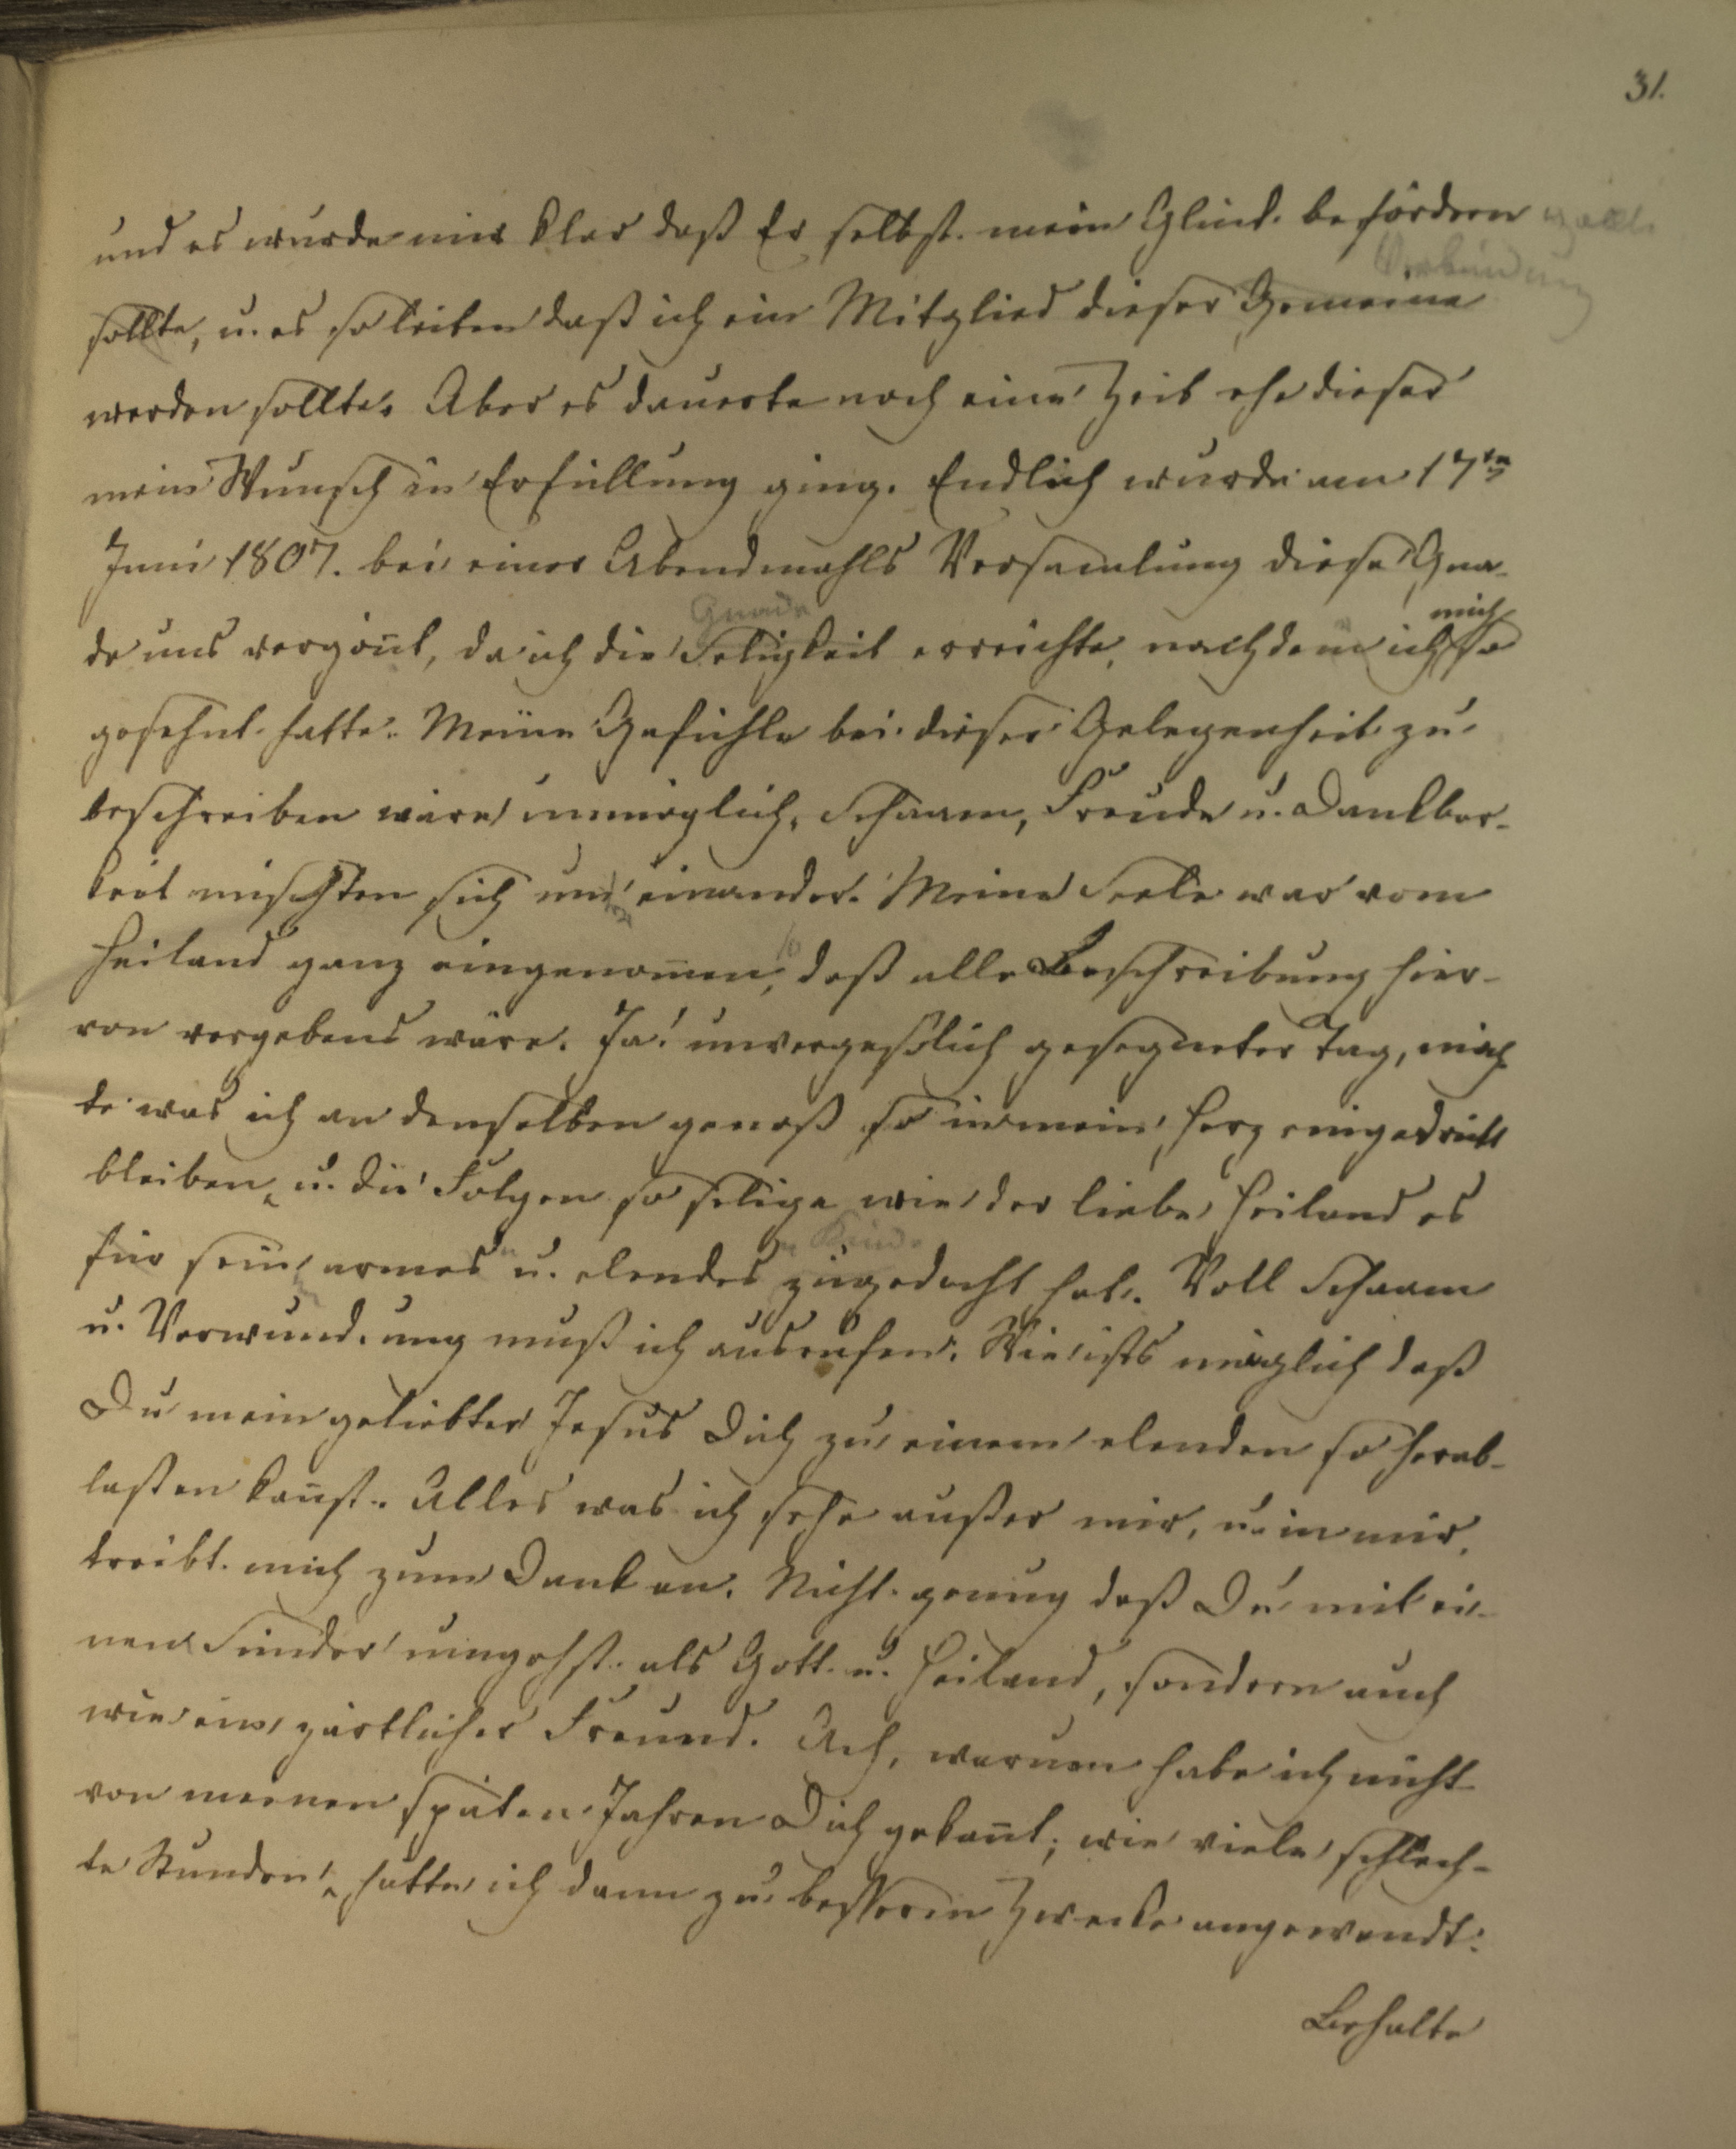 31.
und es wurde mir klar daß Er selbst mein Glück befördern wollte
Verbindung
sollte, u. es so leiten daß ich ein Mitglied dieser Gemeine
werden sollte. Aber es dauerte noch eine Zeit ehe dieser
mein Wunsch in Erfüllung ging. Endlich wurde am 17ten
Juni 1807. bei einer Abendmahls Versamlung diese Gna-
Gnade mich
de uns vergönt, da ich die Seligkeit erreichte, nachdem ich so
gesehnt hatte. Meine Gefühle bei dieser Gelegenheit zu
beschreiben wäre unmöglich, Schaam, Freude u. Dankbar-
keit mischten sich unter einander. Meine Seele war vom
so
Heiland ganz eingenomen, daß alle Beschreibung hier-
von vergebens wäre. Ja! unvergeßlich gesegneter Tag, möch
te was ich an denselben genoß so in mein Herz eingedrückt
bleiben, u. die Folgen so selige wie der liebe Heiland es
Kinde
für sein armes u. elendes zugedacht hat. Voll Schaam
u. Verwunderung muß ich ausrufen: Wie ists möglich daß
Du mein geliebter Jesus Dich zu einem elenden so herab-
laßen kanst. Alles was ich sehe außer mir, u. in mir,
treibt mich zum Danken. Nicht genug daß Du mit ei-
nen Sünder umgehst als Gott u. Heiland, sondern auch
wie ein zärtlicher Freund. Ach, warum habe ich nicht
von meinen späten Jahren Dich gekant; wie viele schlech-
te Stunden, hätte ich dann zu besserem Zwecke angewendt:
Behalte